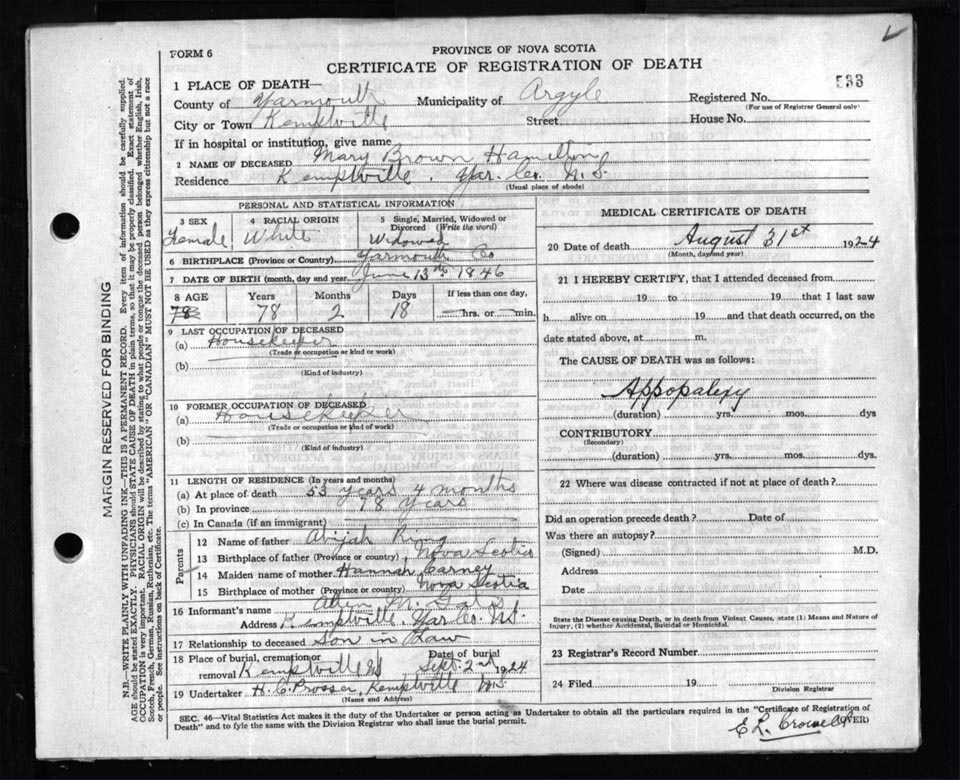 FORM 6
PROVINCE OF NOVA SCOTIA
CERTIFICATE OF REGISTRATION OF DEATH
533
1 PLACE OF DEATH—
County of Yarmouth Municipality of Argyle Registered No.
(For use of Registrar General only)
City or Town Kemptville Street House No.
If in hospital or institution, give name
2 NAME OF DECEASED Mary Brown Hamilton
Residence Kemptville, Yar. Co. N.S.
(Usual place of abode)
PERSONAL AND STATISTICAL INFORMATION
3 SEX 4 RACIAL ORIGIN 5 Single, Married, Widowed or Divorced (Write the word)
Female White Widowed
6 BIRTHPLACE (Province or Country) Yarmouth Co
7 DATE OF BIRTH (month, day and year) June 13th 1846
8 AGE Years Months Days If less than one day,
78 78 2 18 hrs. or min.
9 LAST OCCUPATION OF DECEASED
(a) Housekeeper
(Trade or occupation or kind or work)
(b)
(Kind of industry)
10 FORMER OCCUPATION OF DECEASED
(a) Housekeeper
(Trade or occupation or kind of work)
(b)
(Kind of industry)
11 LENGTH OF RESIDENCE (In years and months)
(a) At place of death 53 years 4 months
(b) In province 78 years
(c) In Canada (if an immigrant)
Parents
12 Name of father Abijah King
13 Birthplace of father (Province or country) Nova Scotia
14 Maiden name of mother Hannah Carney
15 Birthplace of mother (Province or country) Nova Scotia
16 Informant's name
Address Kemptville, Yar Co. N.S.
17 Relationship to deceased Son in Law
18 Place of burial, cremation or removal Kemptville N.S. Date of burial Sept. 2nd 1924
19 Undertaker H. C. Prosser, Kemptville N.S.
(Name and Address)
MEDICAL CERTIFICATE OF DEATH
20 Date of death August 31st 1924
(Month, day and year)
21 I HEREBY CERTIFY, that I attended deceased from
19 to 19 that I last saw
h alive on 19 and that death occurred, on the
date stated above, at m.
The CAUSE OF DEATH was as follows:
Appopalexy
(duration) yrs. mos. dys
CONTRIBUTORY
(Secondary)
(duration) yrs. mos. dys.
22 Where was disease contracted if not at place of death?
Did an operation precede death? Date of
Was there an autopsy?
(Signed) M.D.
Address
Date
State the Disease causing Death, or in death from Violent Causes, state (1) Means and Nature of
Injury, (2) whether Accidental, Suicidal or Homicidal.
23 Registrar's Record Number
24 Filed 19
Division Registrar
SEC. 46—Vital Statistics Act makes it the duty of the Undertaker or person acting as Undertaker to obtain all the particulars required in the "Certificate of Registration of
Death" and to fyle the same with the Division Registrar who shall issue the burial permit.
(OVER)
E L. Crowell
MARGIN RESERVED FOR BINDING
N.B.—WRITE PLAINLY WITH UNFADING INK—THIS IS A PERMANENT RECORD. Every item of information should be carefully supplied.
AGE should be stated EXACTLY. PHYSICIANS should STATE CAUSE OF DEATH in plain terms, so that it may be properly classified. Exact statement of
OCCUPATION is very important. RACIAL ORIGIN will be described by stating to what people or tongue the deceased person belonged whether English, Irish,
Scotch, French, German, Russian, Ruthenian, etc. The terms "AMERICAN" OR "CANADIAN" MUST NOT BE USED as they express citizenship but not a race
or people. See instructions on back of Certificate.